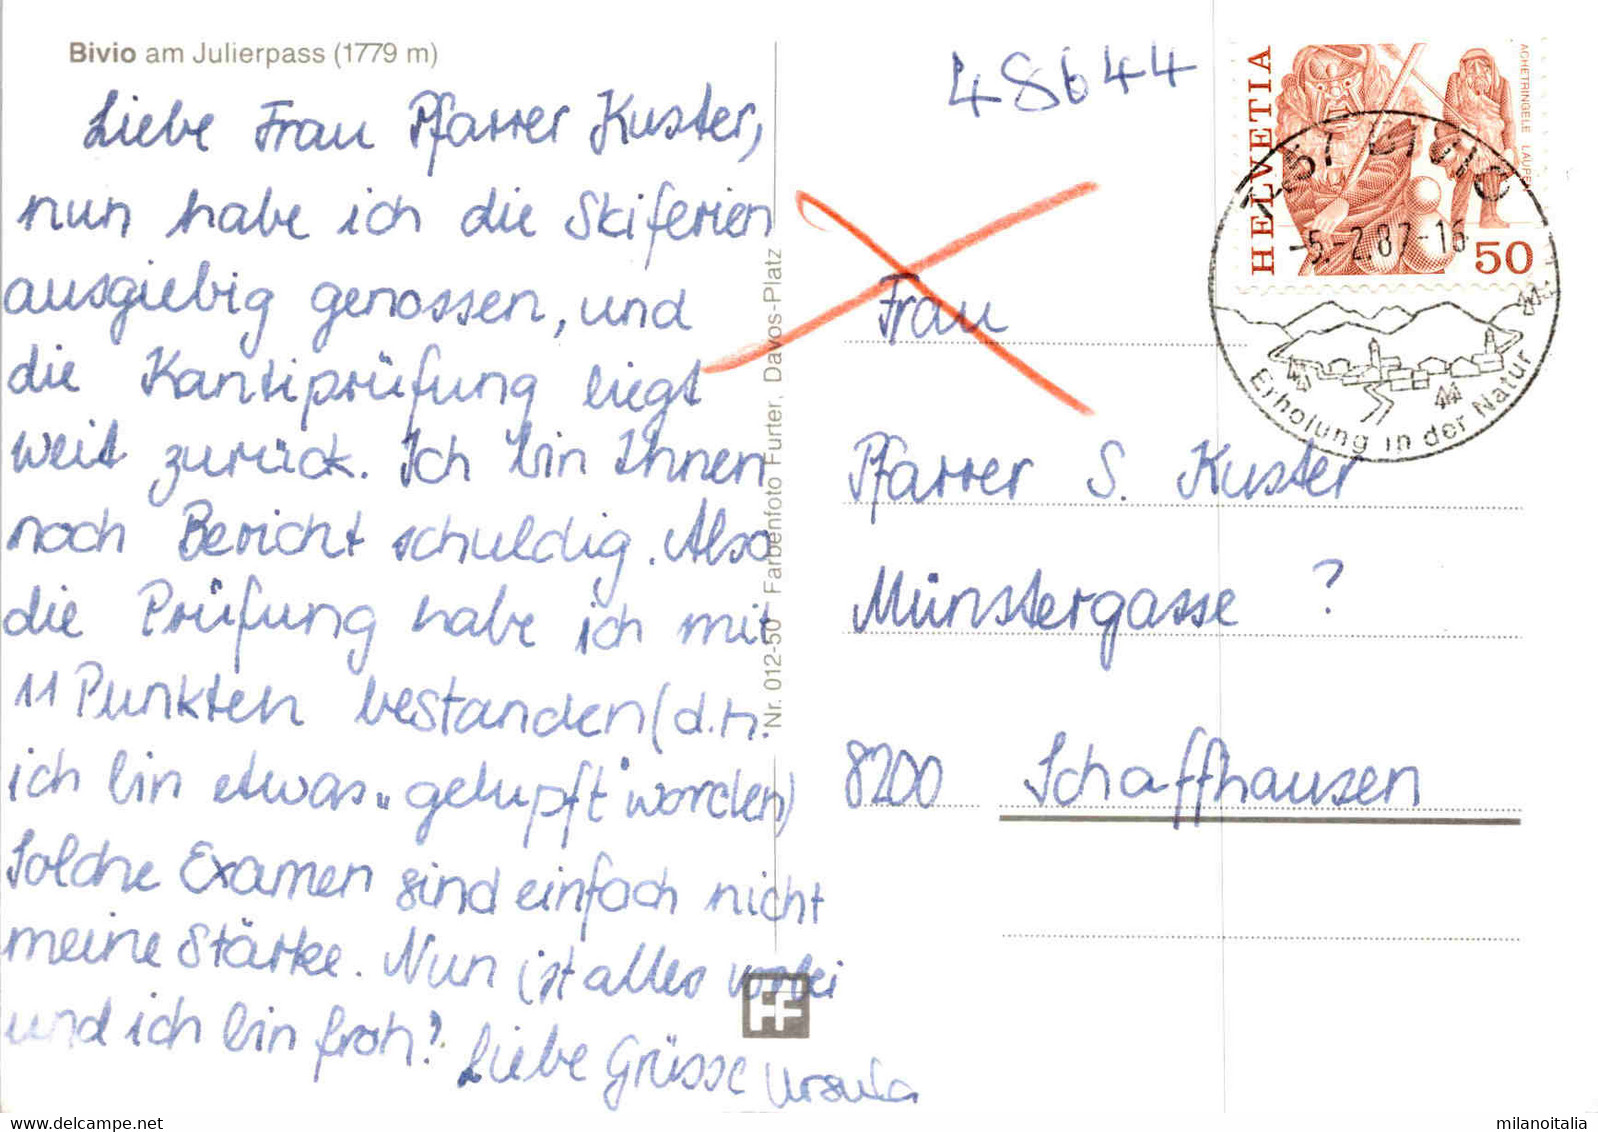 Bivio am Julierpass (1779 m)
Liebe Frau Pfarrer Kuster,
nun habe ich die Skiferien
ausgiebig genossen, und
die Kantiprüfung liegt
weit zurück. Ich bin Ihnen
noch Bericht schuldig. Also
die Prüfung habe ich mit
11 Punkten bestanden (d.h.
ich bin etwas „gelupft" worden)
Solche Examen sind einfach nicht
meine Stärke. Nun ist alles vorbei
und ich bin froh! Liebe Grüsse Ursula
Nr. 012-50 Farbenfoto Furter, Davos-Platz
FF
48644
HELVETIA
ACHETRINGELE LAUPEN
50
BIVIO
-5.-2.87-16
Erholung in der Natur
Frau
Pfarrer S. Kuster
Münstergasse ?
8200 Schaffhausen
milanoitalia